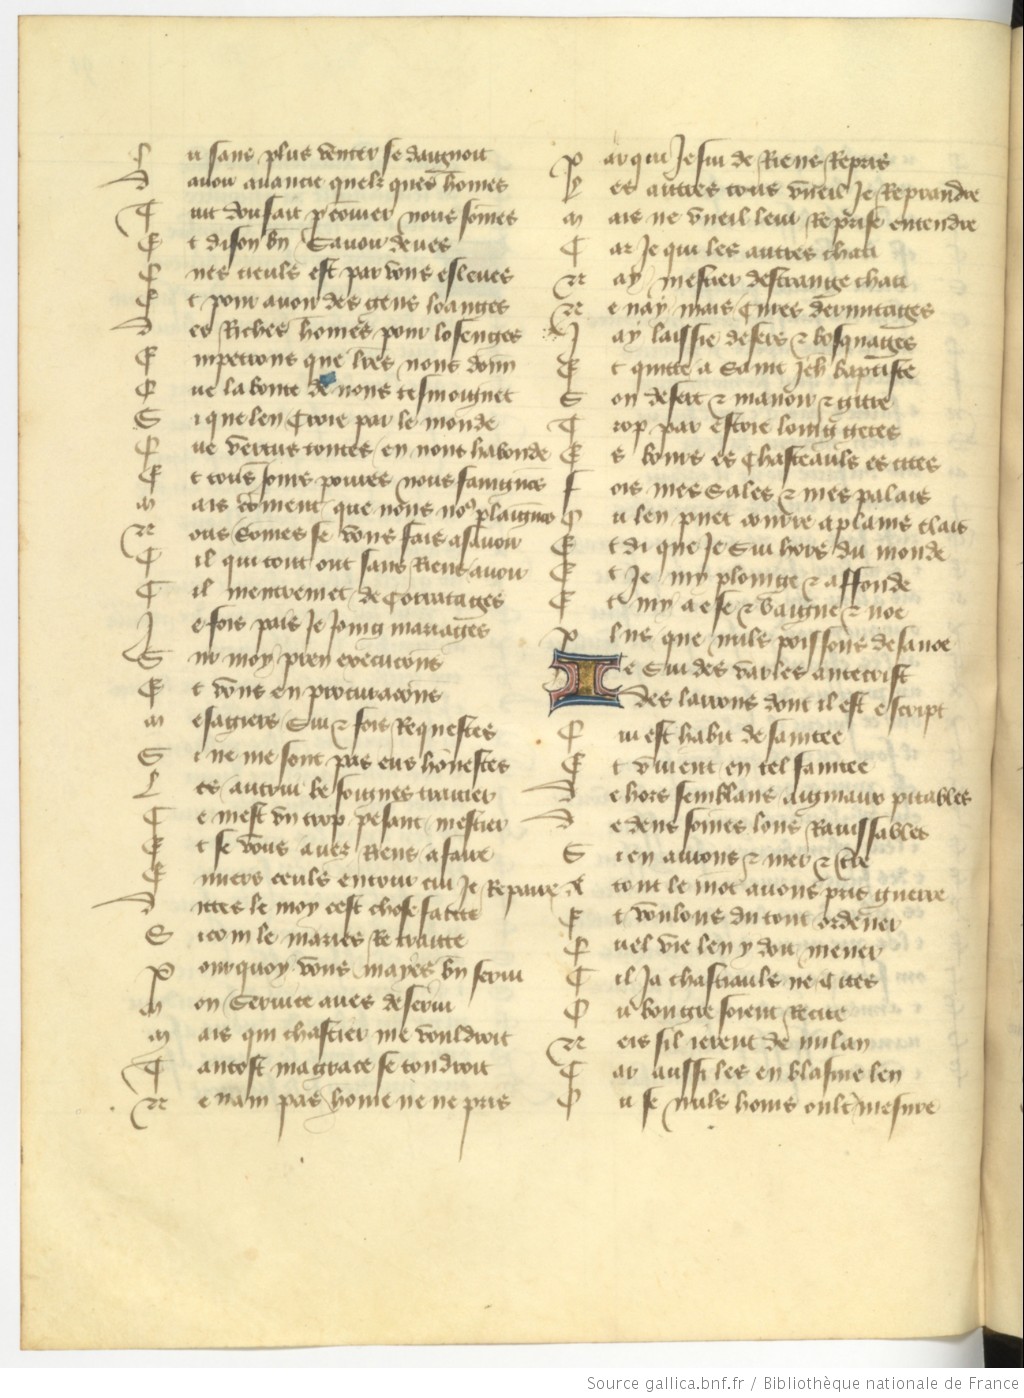 Qu sans plus venter se daignoit
D avoir avancie quelz ques hommes
T uit dou fait pcōnier nous sōmes
E t dison bn savoir deves
Q nes tieuls est par vous esleues
E t pour avoir des gens loanges
D es Riches hommes pour losenges
E mpetrons que lrēs nous donn
Q ue la bonte de nous tesmoignet
S i que len Croie par le monde
Q ue vertus toutes en nous habonde
E t tous iours povres nous faingnōs
M ais cōment que nous no9 plaignōs
N ous Somes se vous fais asavoir
C il qui tout ont sans Riens avoir
C il mentremet de Corratages
J e fois pais Je Joing mariages
S ur moy pren execucōns
E t vous en procuracōns
M esagiers Sui & fois Requestes
S i ne me sont pas eus hōnestes
L es autrui besoignes traitier
C e mest vn trop pesant mestier
E t se vous avez Riens a faire
E nvers ceuls entour cui Je Repaire
D ittes le moy cest chose faitte
S i com le maries Retraitte
P ourquoy vous mayes bn servi
M on Service aves deservi
M ais qui chastier me vouldroit
T antost ma grace se toudroit
N e naim pas home ne ne pris
P ar qui Je sui de Riens Repris
L es autres tous vueil Je Reprandre
M ais ne vueil leur Reprise entendre
C ar Je qui les autres chati
N ay mestier destrange chati
N e nay mais Cures dermitages
J ay laissie desers & bosquaiges
E t quitte a Saint Jeh baptiste
S on desert & manoir & gitte
T rop par estoie loing getes
E s bours es Chasteauls es cites
F ois mes Sales & mes palais
O u len puet courre a plains elais
E t di que Je Sui hors du monde
E t Je my plonige & affonde
E t my aese & baigne & noe
P lus que nuls poissons de sa noe
J e Sui des varles antecrist
Des larrons dont il est escript
Q ui est habit de saintee
E t vivent en tel faintee
D ehors semblans aigniaux pitables
D edens somes lous Ravissables
S i en avons & mer & tr̄e
A tout le mot avons pris guerre
E t voulons du tout ordener
Q uel vie len y doit mener
C il Ja chastiauls ne Cites
O u bougre soient Recite
N eis sil ierent de milan
C ar aussi les en blasme len
O u se nuls homs oult mesure